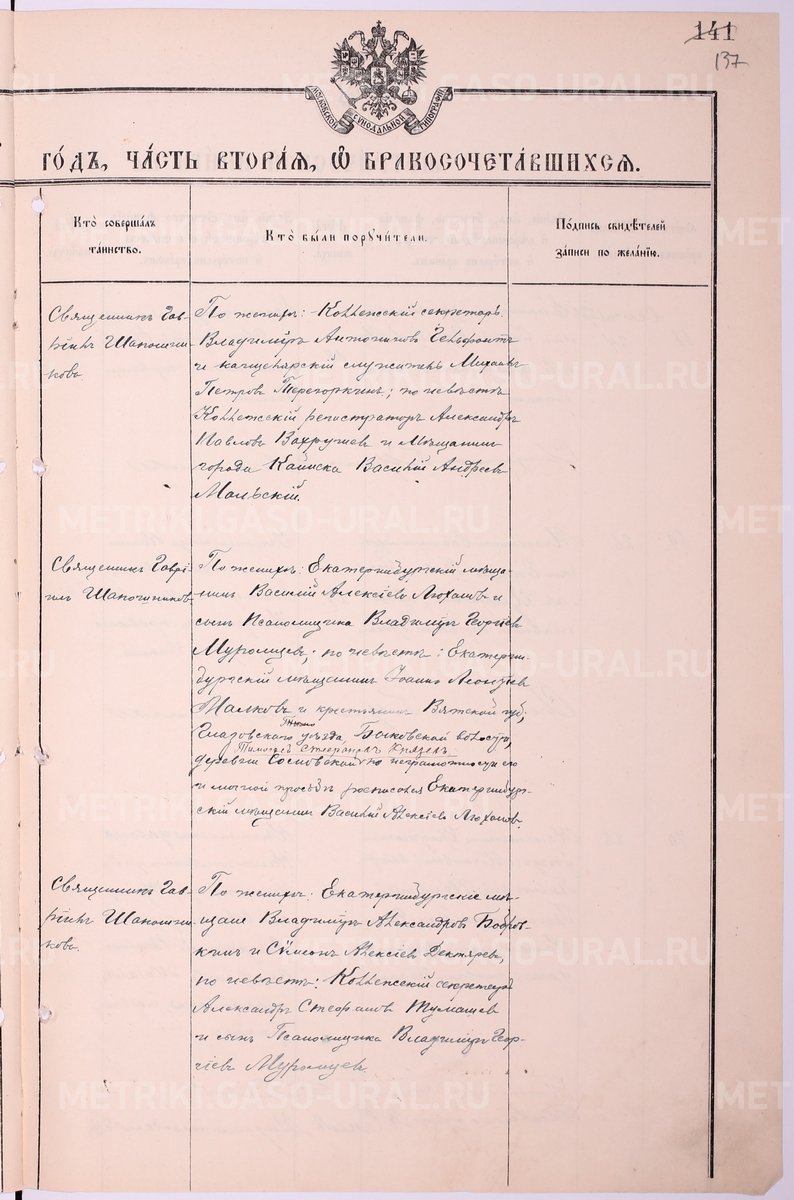 141
137
МОСКОВСКОЙ СѴНОДАЛЬНОЙ ТИПОГРАФІИ
ГО́ДЪ, ЧА́СТЬ ВТОРА́Я, Ѽ БРАКОСОЧЕТА́ВШИХСЯ.
Кто̀ соверша́лъ
та́инство.
Кто̀ бы́ли порꙋчи́тели.
По́дпись свидѣ́телей
за́писи по жела́нїю.
Священникъ Гав-
ріилъ Шапошни-
ковъ
По женихѣ: Коллежскій секретарь
Владиміръ Антониновъ
и канцелярскій служитель Михаилъ
Петровъ; по невѣстѣ
Коллежскій регистраторъ Александръ
Павловъ Вахрушев и Мѣщанин
города Каинска Василій Андреев
Мальскій.
Священникъ Гаврі-
илъ Шапошников
По женихѣ: Екатеринбургскій мѣща-
нинъ Василій Алексіевъ Люханов и
сынъ Псаломщика Владиміръ Георгіев
Муромцевъ; по невѣстѣ: Екатерин-
бургскій мѣщанинъ Іоаннъ Леонтіев
Малков и крестьянин Вятской губ,
Глазовскаго уѣзда, Быковской волости,
Тимофей Стефановъ Князевъ
деревни Сосновской по неграмотности его
и личной просьбѣ росписался Екатеринбург-
скій мѣщанин Василій Алексіевъ Люханов.
Священникъ Гав-
ріилъ Шапошни-
ковъ.
По женихѣ: Екатеринбургскіе мѣ-
щане Владиміръ Александровъ Бобров-
скій и Сѵмеонъ Алексіев Дектярев,
по невѣстѣ: Коллежскій секретарь
Александръ Стефановъ Тумашев
и сынъ Псаломщика Владиміръ Геор-
гіевъ Муромцев.
METRIKI.GASO-URAL.RU